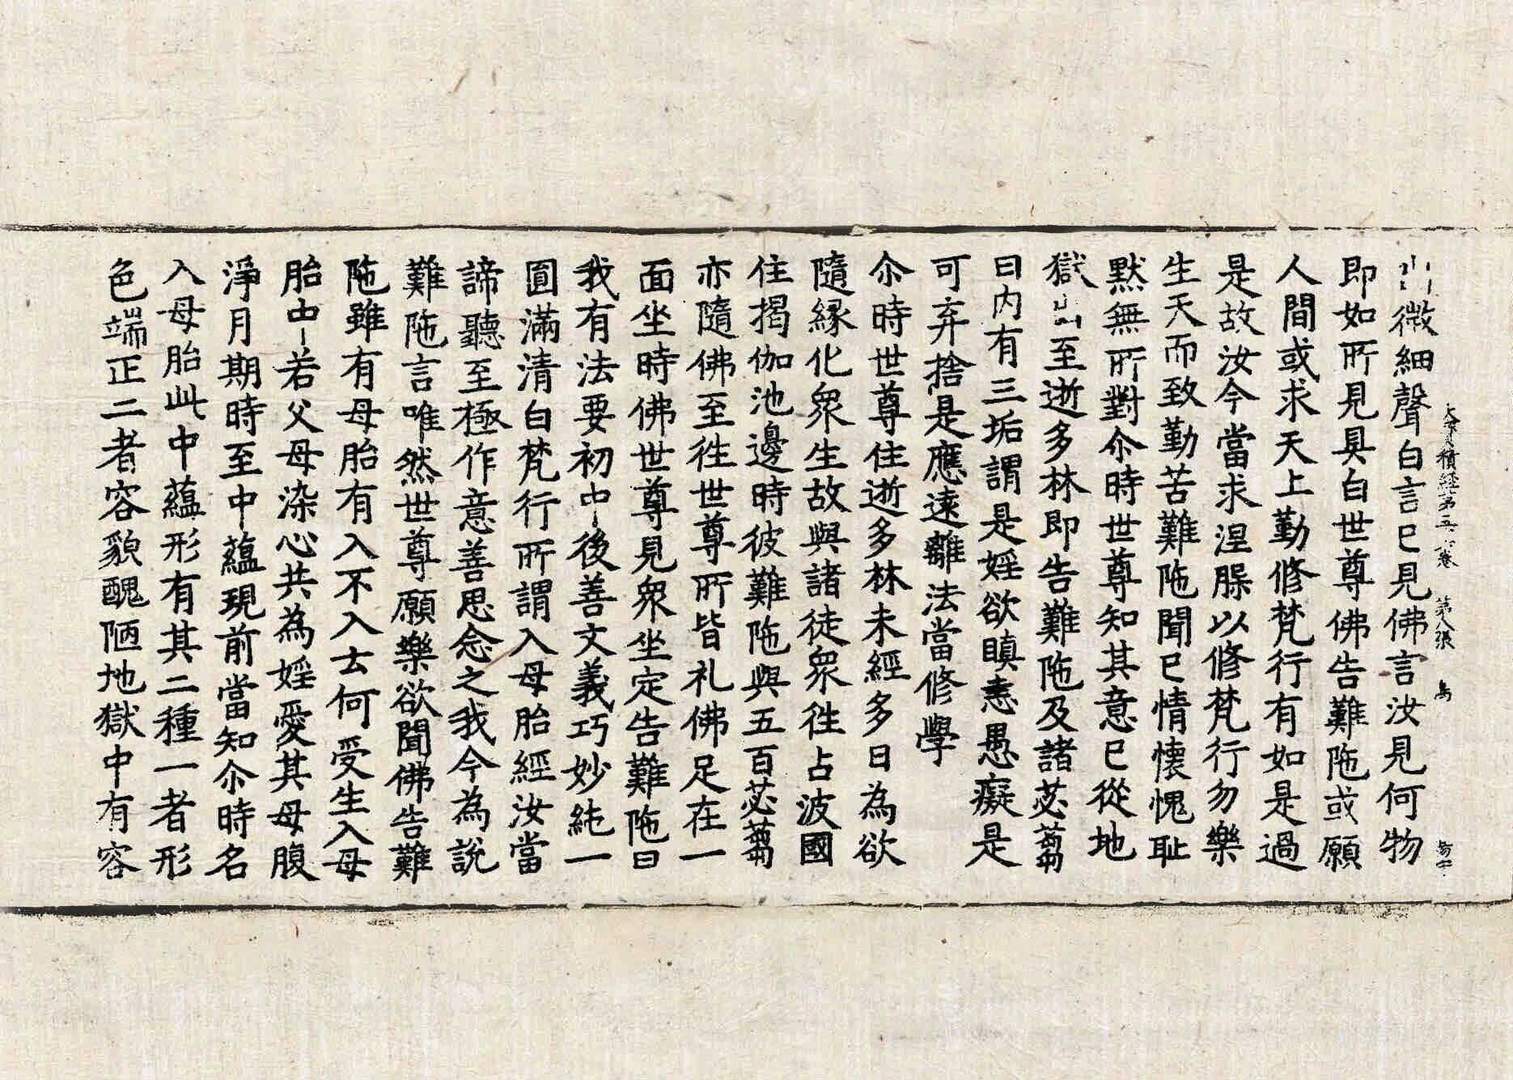 大寶積經第五十六卷 第八張 鳥
出微細聲白言已見佛言汝見何物
即如所見具白世尊佛告難陁或願
人間或求天上勤修梵行有如是過
是故汝今當求涅槃以修梵行勿樂
生天而致勤苦難陁聞已情懷愧耻
黙無所對尒時世尊知其意已從地
獄出至逝多林即告難陁及諸苾蒭
曰内有三垢謂是婬欲瞋恚愚癡是
可弃捨是應遠離法當修學
尒時世尊住逝多林未經多日為欲
隨緣化衆生故與諸徒衆徃占波國
住揭伽池邊時彼難陁與五百苾蒭
亦隨佛至徃世尊所皆礼佛足在一
面坐時佛世尊見衆坐定告難陁曰
我有法要初中後善文義巧妙純一
圓滿清白梵行所謂入母胎經汝當
諦聽至極作意善思念之我今為說
難陁言唯然世尊願樂欲聞佛告難
陁雖有母胎有入不入云何受生入母
胎中若父母染心共為婬愛其母腹
淨月期時至中蘊現前當知尒時名
入母胎此中蘊形有其二種一者形
色端正二者容貌醜陋地獄中有容